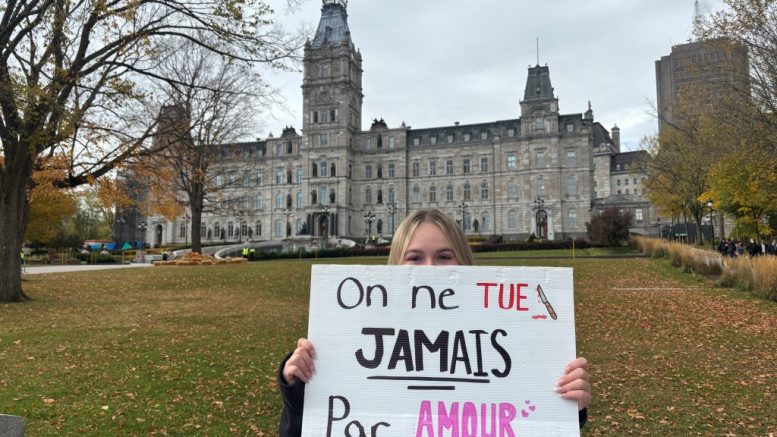 On ne TUE
JAMAIS
Par AMOUR